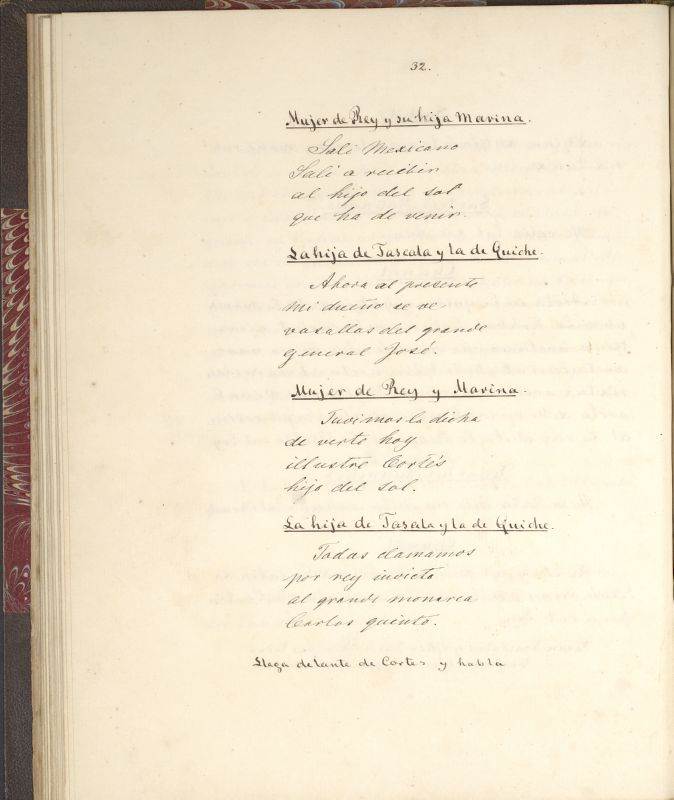 32.
Mujer de Rey y su hija Marina.
Sali Mexicano
Sali a recibir
al hijo del sol
que ha de venir.
La hija de Tascala y la de Quiche.
Ahora al presente
mi dueño se ve
vasallas del grande
general José.
Mujer de Rey y Marina.
Tuvimos la dicha
de verte hoy
illustre Cortés
hijo del sol.
La hija de Tascala y la de Quiche.
Todas clamamos
por rey invicto
al grande monarca
Carlos quinto.
Llega delante de Cortes y habla